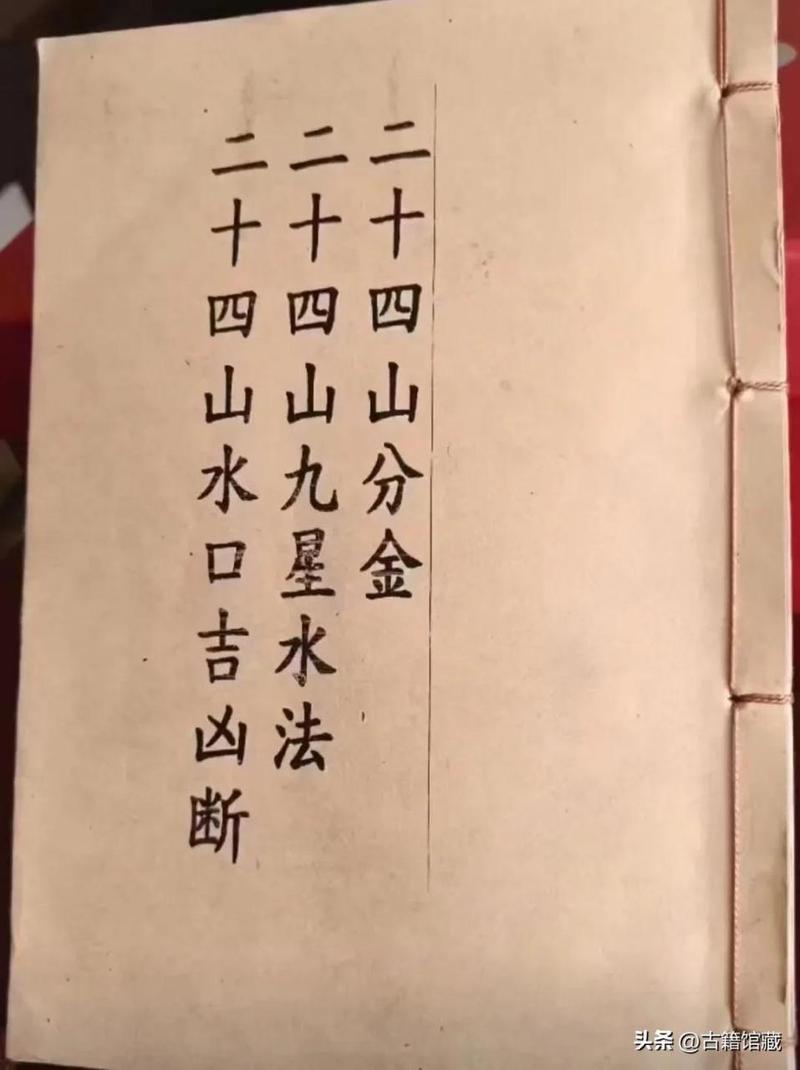 二十四山分金
二十四山九星水法
二十四山水口吉凶断
头条 @古籍馆藏